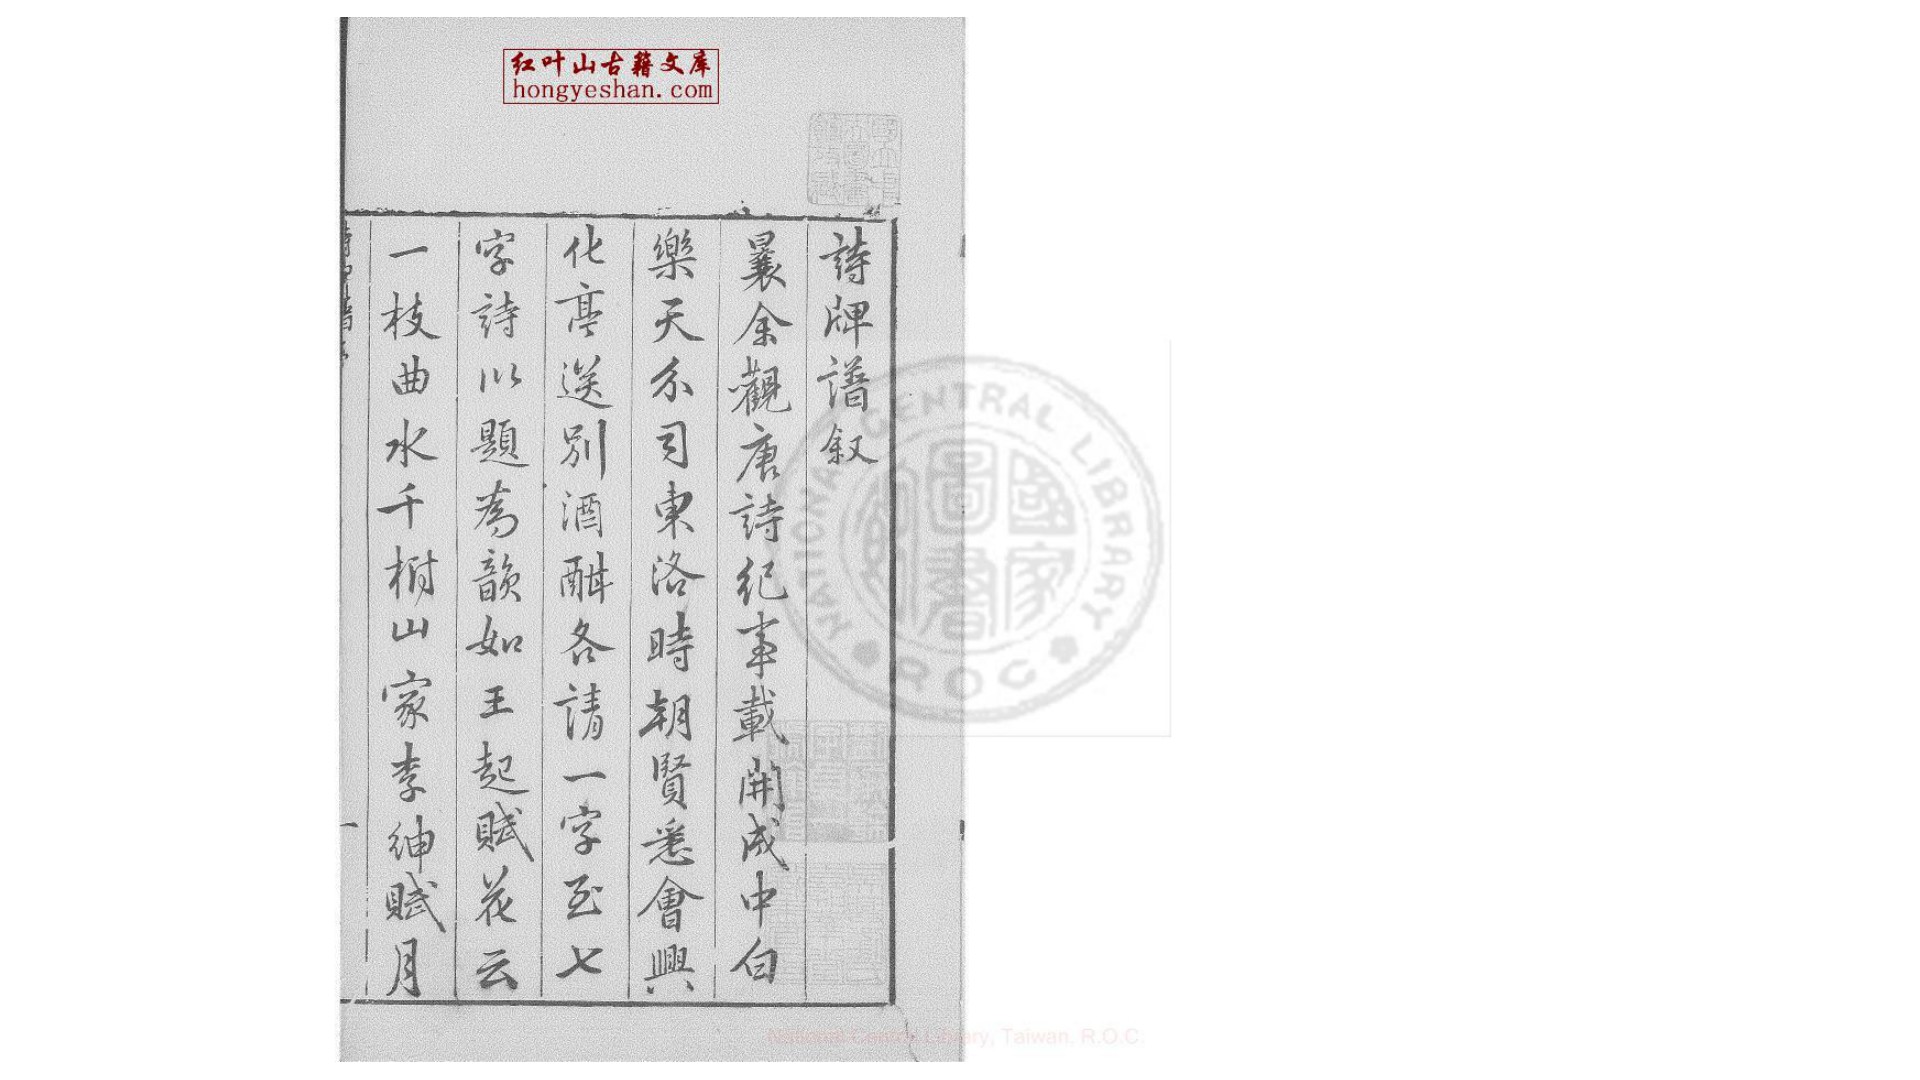 红叶山古籍文库
hongyeshan.com
詩牌譜叙
曩余觀唐詩紀事載開成中白
樂天分司東洛時朝賢悉會興
化亭送別酒酣各請一字至七
字詩以題為韻如王起賦花云
一枝曲水千樹山家李紳賦月
NATIONAL CENTRAL LIBRARY
ROC
國家圖書館
National Central Library, Taiwan, R.O.C.